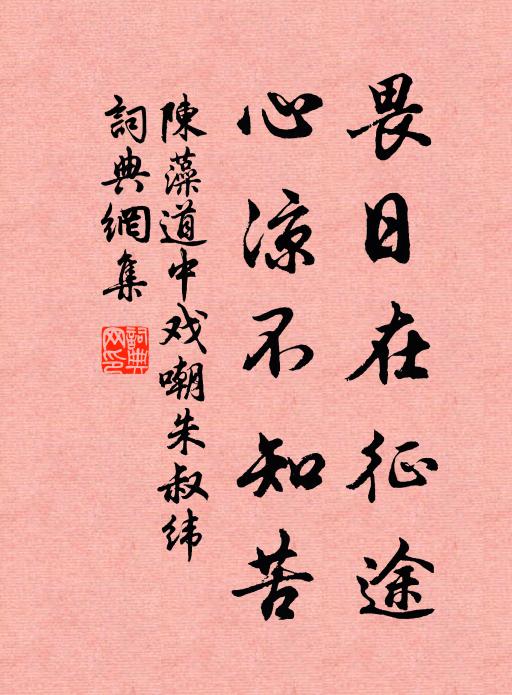 畏日在征途
心凉不知苦
陳藻道中戏嘲朱叔纬
詞典網集
詞典网印